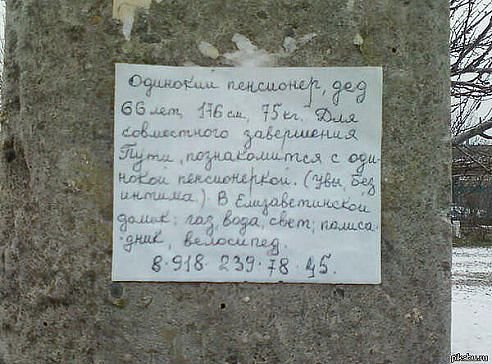 Одинокий пенсионер, дед
66 лет, 176 см, 75 кг. Для
совместного завершения
Пути, познакомится с оди-
нокой пенсионеркой. (Увы, без
интима.) В Елизаветинской
домик: газ, вода, свет; полиса-
дник, велосипед.
8·918·239·78·45.
pikabu.ru